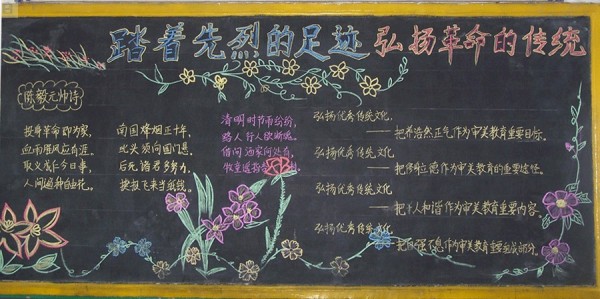 踏着先烈的足迹 弘扬革命的传统
陈毅元帅诗
投身革命即为家，
血雨腥风应有涯。
取义成仁今日事，
人间遍种自由花。
南国烽烟正十年，
此头须向国门悬。
后死诸君多努力，
捷报飞来当纸钱。
清明时节雨纷纷，
路人行人欲断魂。
借问酒家何处有，
牧童遥指
弘扬优秀传统文化，
——把养浩然正气作为审美教育重要目标。
弘扬优秀传统文化，
——把修身立德作为审美教育的重要途径。
弘扬优秀传统文化，
——把人和谐作为审美教育重要内容。
弘扬优秀传统文化，
——把自强不息作为审美教育重要组成部分。